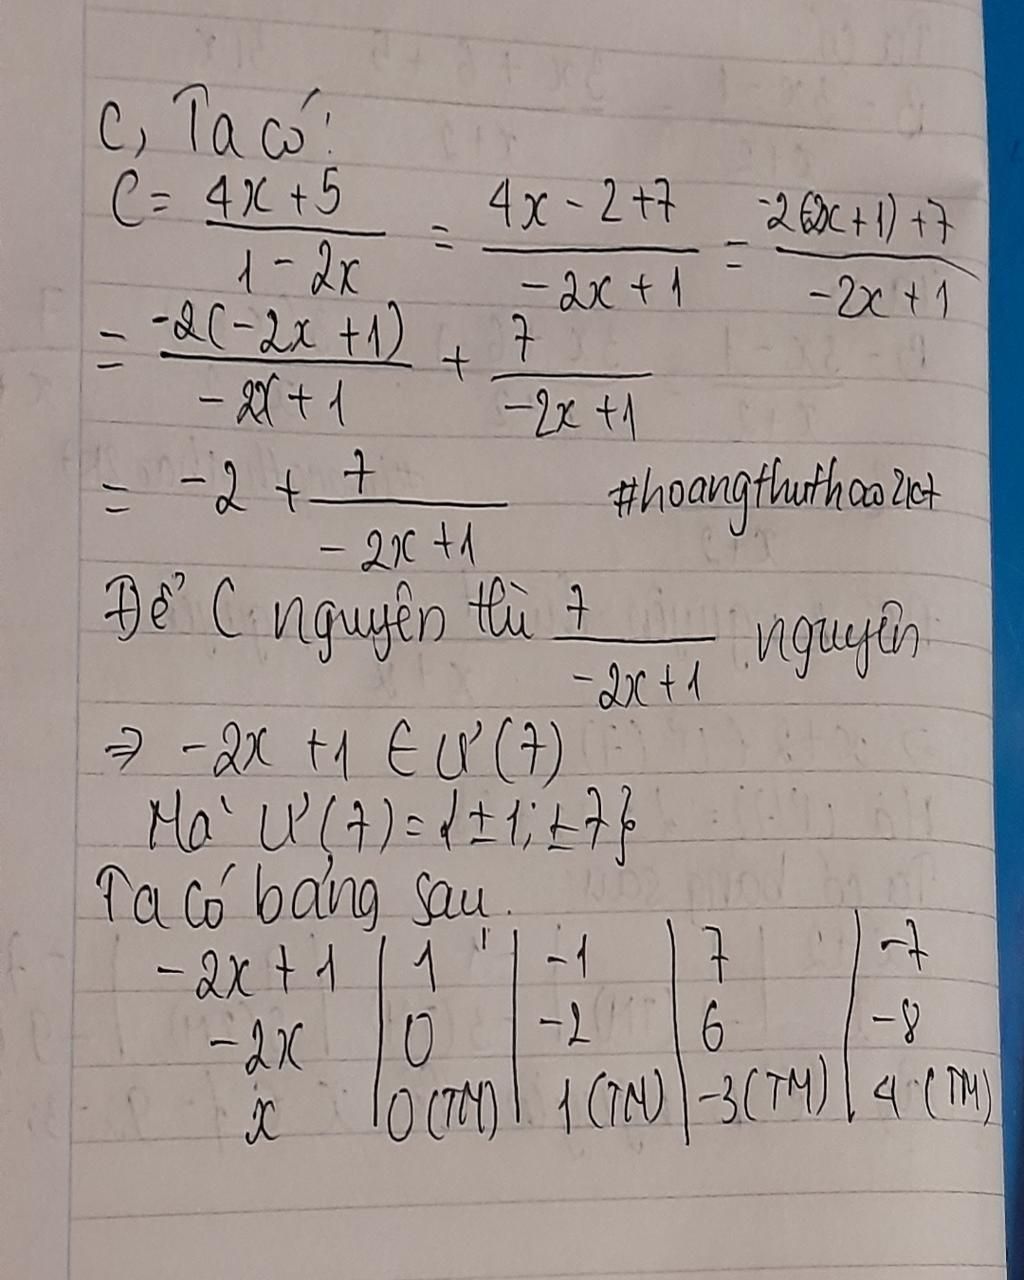 C, Ta có:
C = \frac{4x+5}{1-2x} = \frac{4x-2+7}{-2x+1} = \frac{-2(-2x+1)+7}{-2x+1}
= \frac{-2(-2x+1)}{-2x+1} + \frac{7}{-2x+1}
= -2 + \frac{7}{-2x+1} #hoangthuthao2k7
Để C nguyên thì \frac{7}{-2x+1} nguyên
⇒ -2x +1 ∈ Ư(7)
Mà Ư(7) = {±1; ±7}
Ta có bảng sau.
-2x + 1 | 1 | -1 | 7 | -7
-2x | 0 | -2 | 6 | -8
x | 0 (TM) | 1 (TM) | -3 (TM) | 4 (TM)